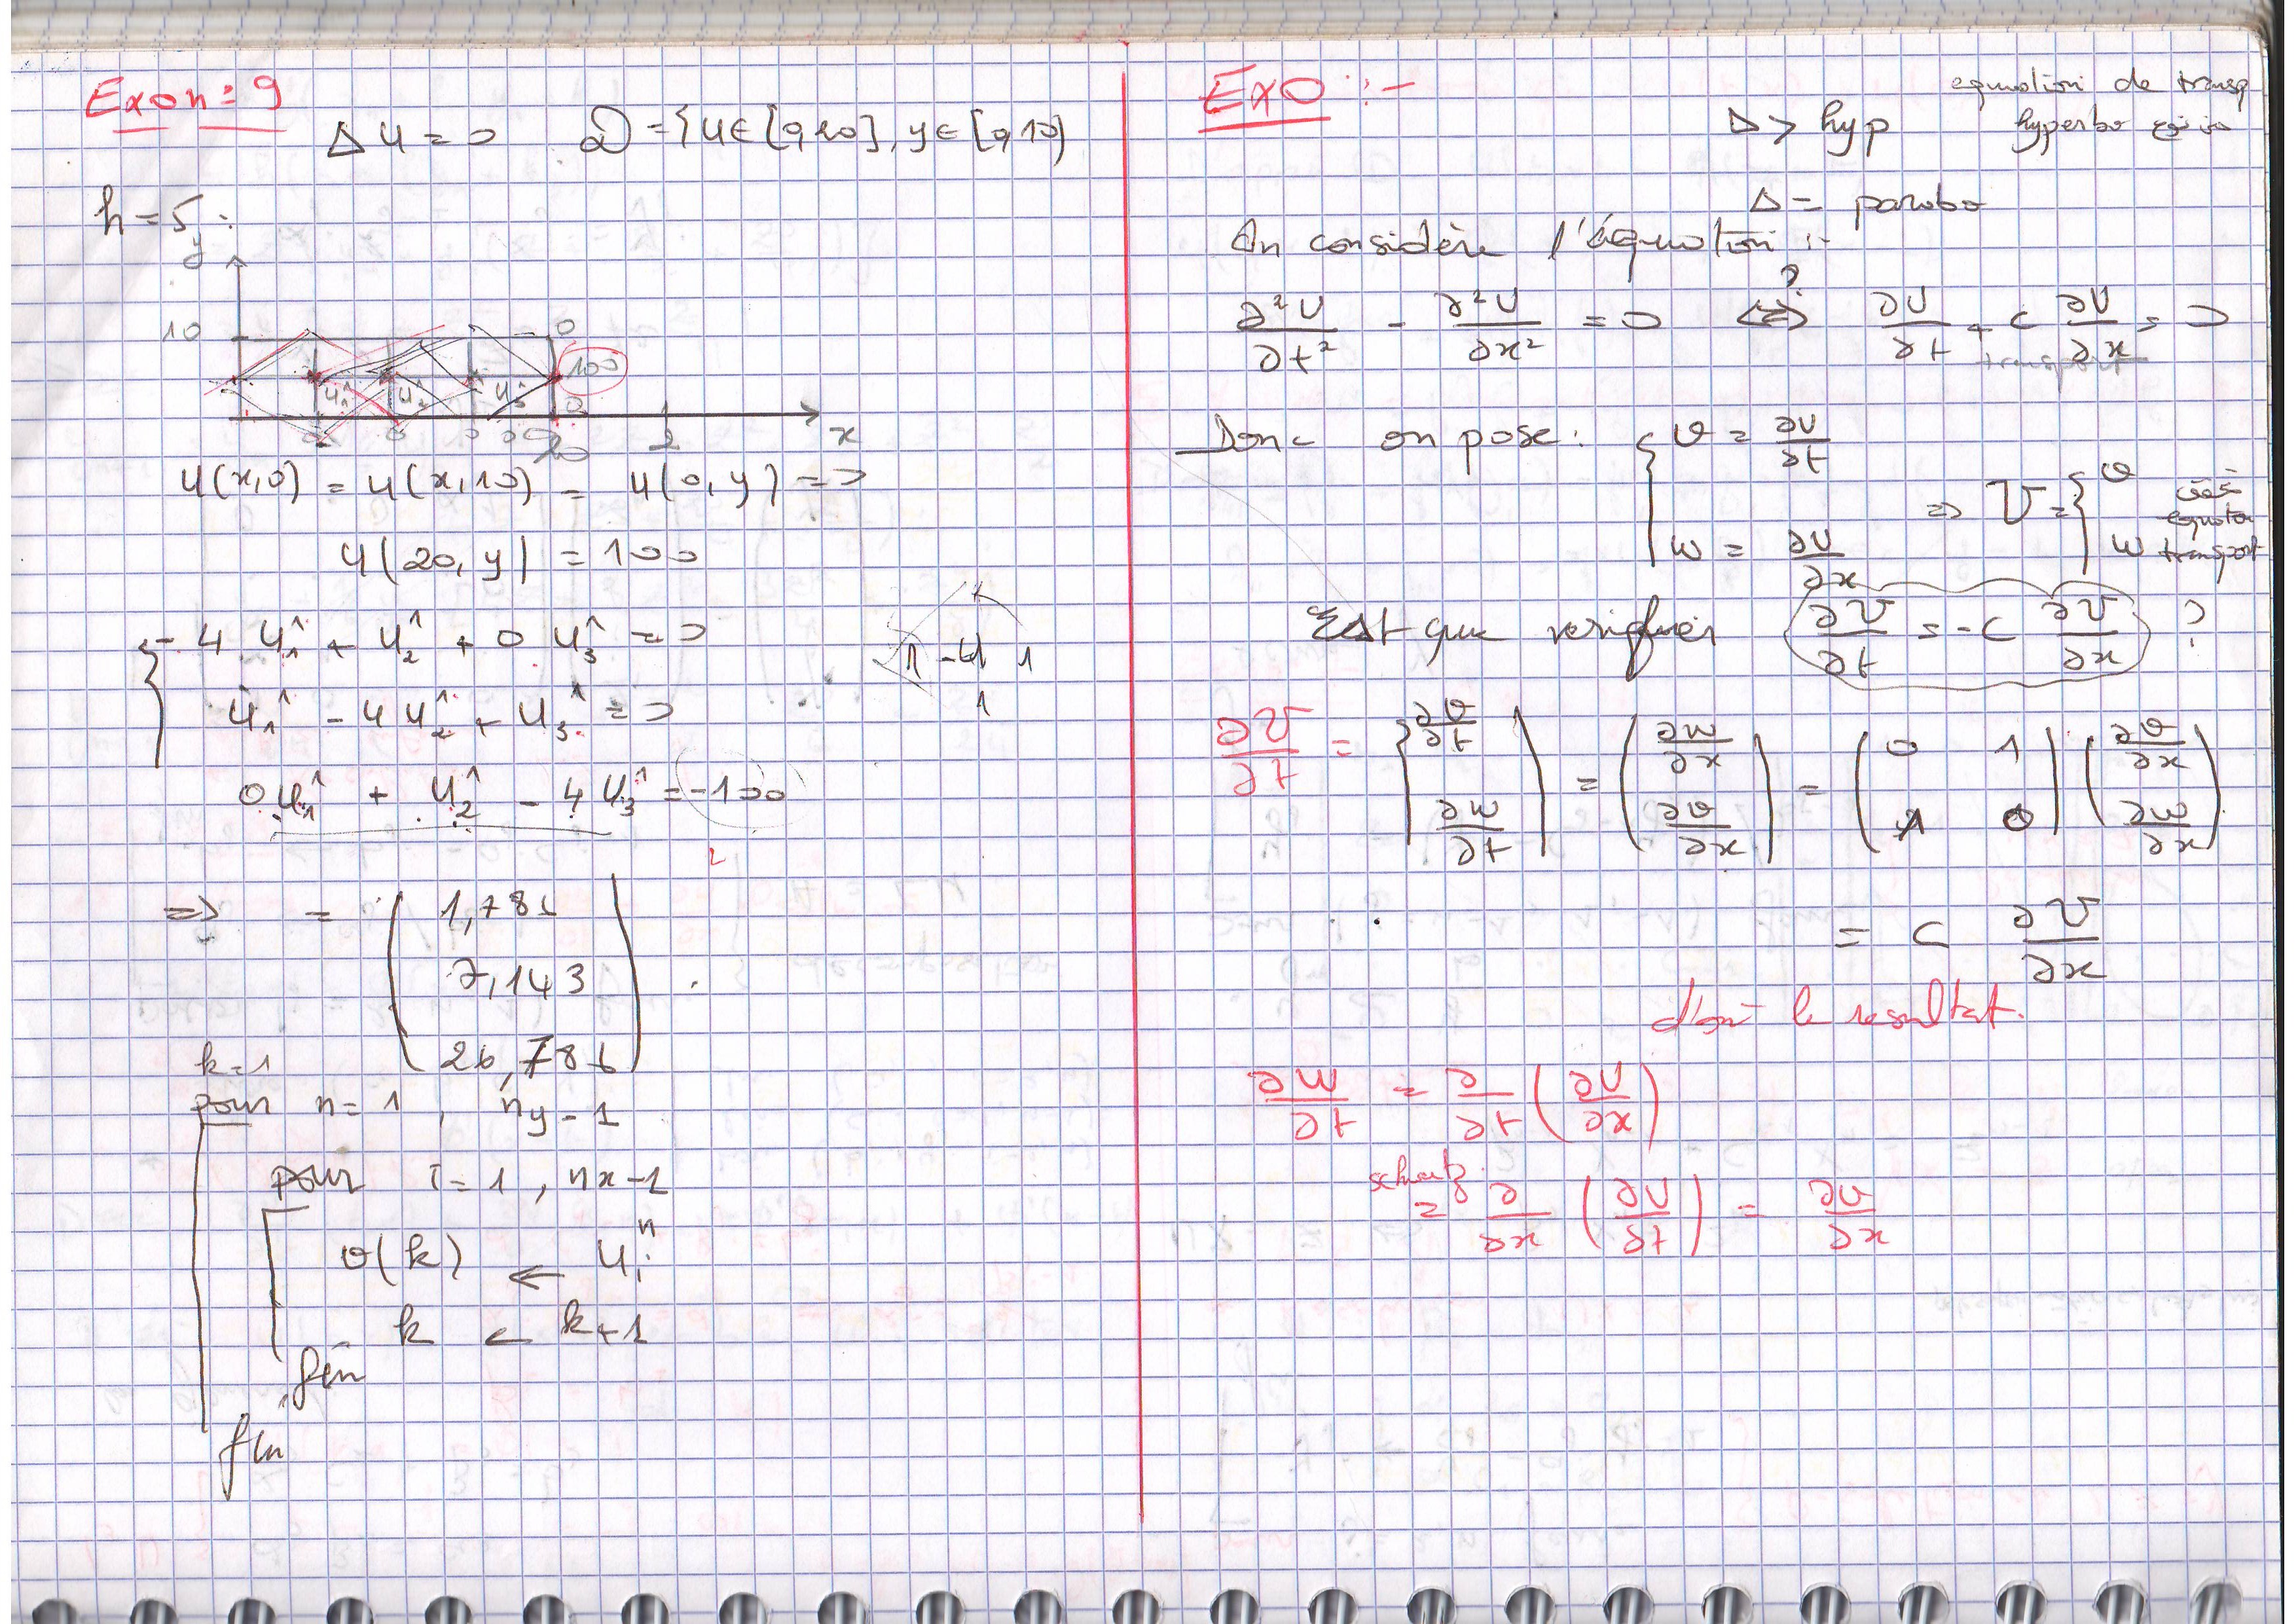 Exo n= 9
Δu = 0   D = {u ∈ [0,20], y ∈ [0,10)
h = 5
y
10
0
100
u₁¹ u₂¹ u₃¹
0
0 0 0
20
x
u(x,0) = u(x,10) = u(0,y) = 0
u(20,y) = 100
- 4 u₁¹ + u₂¹ + 0 u₃¹ = 0
u₁¹ - 4 u₂¹ + u₃¹ = 0
0 u₁¹ + u₂¹ - 4 u₃¹ = -100
1 -4 1
1
=> = ( 1,786
7,143
26,786 )
k=1
pour n = 1 , ny-1
pour i = 1 , nx-1
v(k) ← uᵢⁿ
k ← k+1
fin
fin
EXO :-
equation de transp
Δ > hyp   hyperbo
Δ = parabo
On considère l'équation :-
∂²U/∂t² - ∂²U/∂x² = 0 <=>? ∂U/∂t + c ∂U/∂x = 0
transport
Donc on pose : { v = ∂U/∂t
w = ∂U/∂x
=> V = { v
w
transport
Est que verifier ∂V/∂t = -c ∂V/∂x ?
∂V/∂t = ( ∂v/∂t ; ∂w/∂t ) = ( ∂w/∂x ; ∂v/∂x ) = ( 0 1 ; 1 0 ) ( ∂v/∂x ; ∂w/∂x )
= C ∂V/∂x
d'où le resultat.
∂w/∂t = ∂/∂t ( ∂U/∂x )
schwatz
= ∂/∂x ( ∂U/∂t ) = ∂v/∂x